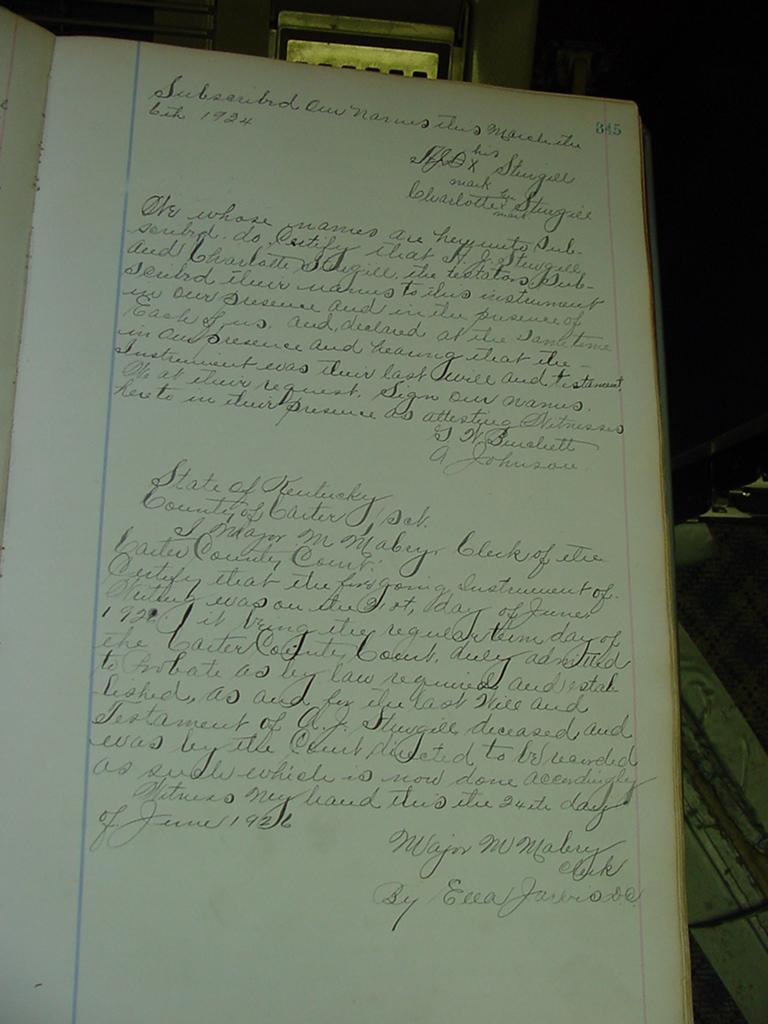 345
Subscribed our names this March the
6th 1924
his
X Sturgill
mark her
Charlotte Sturgill
mark
We whose names are hereunto Sub-
scribd. do, Certify that A. J. Sturgill
and Charlotte Sturgill, the testators, Sub-
scribd their names to this instrument
in our presence and in the presence of
Each of us. and, declared at the Same time
in our presence and hearing that the
Instrument was their last will and testament,
We at their request. Sign our names.
hereto in their presence as attesting Witnesses
G W Burchett
A Johnson
State of Kentucky
County of Carter / Sct.
I Major M Mabry, Clerk of the
Carter County Court.
Certify that the foregoing Instrument of-
Writing was on the 21st, day of June,
192 it being the regular term day of
the Carter County Court. duly admitted
to Probate as by law required and estab
lished, as and for the last Will and
Testament of A. J. Sturgill deceased, and
was by the Court directed to be recorded
as such which is now done accordingly
Witness My hand this the 24th day
of June 1926
Major M Mabry
Clerk
By Ella Jarvis DC